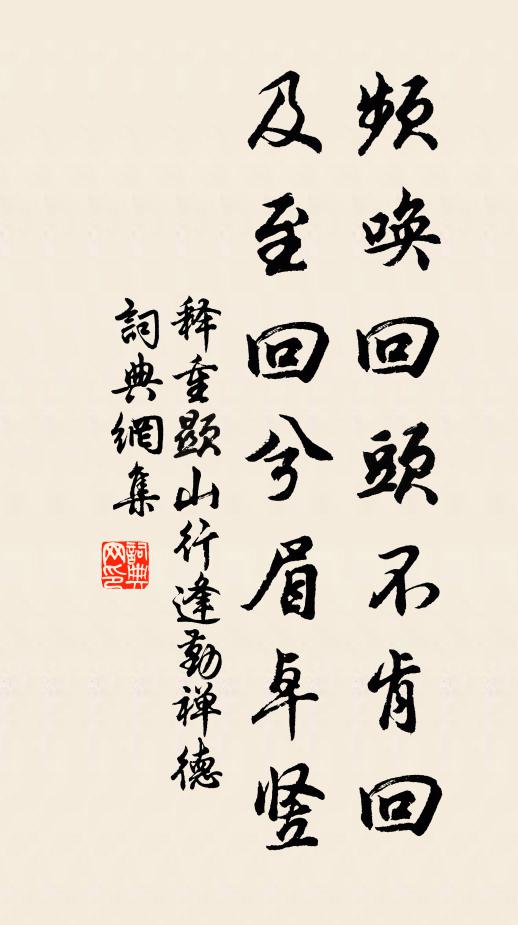 频唤回头不肯回
及至回兮眉卓竖
释重显山行逢勤禅德
詞典網集
詞典网印